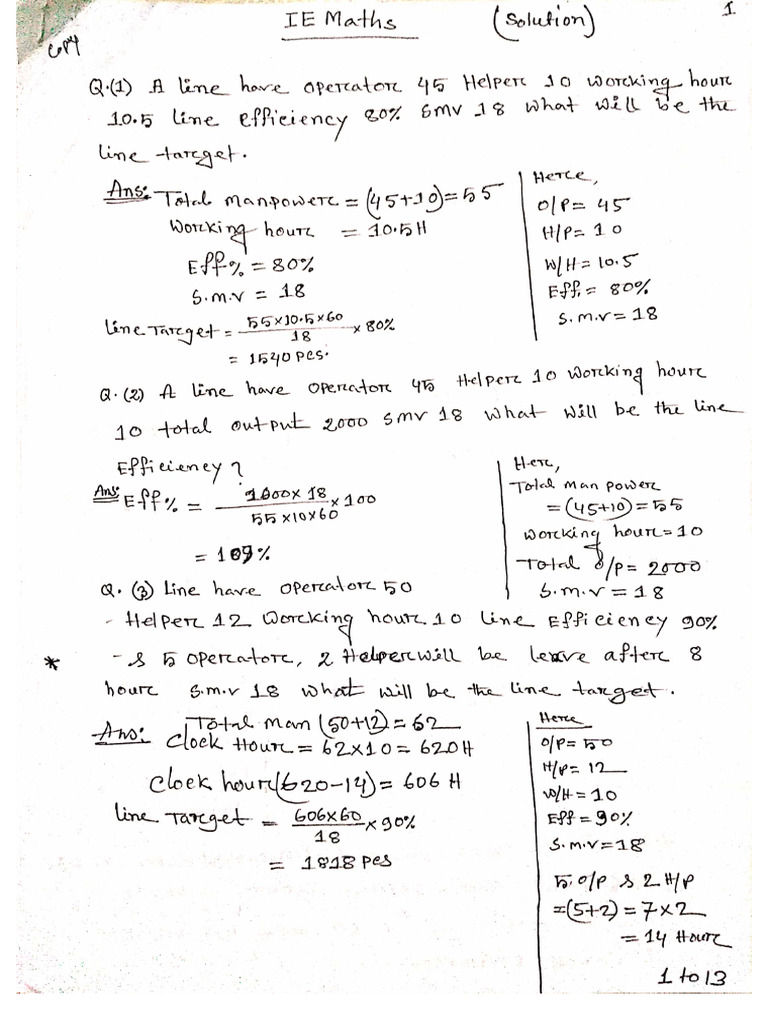 IE Maths (Solution) 1
Copy
Q.(1) A line have operator 45 Helper 10 working hour
10.5 line efficiency 80% smv 18 what will be the
line target.
Ans: Total manpower = (45+10) = 55
Working hour = 10.5H
Eff% = 80%
S.m.v = 18
Line Target = 55×10.5×60 / 18 × 80%
= 1540 pcs.
Here,
O/P = 45
H/P = 10
W/H = 10.5
Eff. = 80%
S.m.v = 18
Q.(2) A line have operator 45 Helper 10 working hour
10 total output 2000 smv 18 what will be the line
Efficiency?
Ans: Eff% = × 18 / 55×10×60 × 100
= 109%
Here,
Total man power
= (45+10) = 55
working hour = 10
Total O/P = 2000
S.m.v = 18
Q. (3) Line have operator 50
- Helper 12 Working hour 10 line Efficiency 90%
* - & 5 operator, 2 Helper will be leave after 8
hour s.m.v 18 what will be the line target.
Ans: Total man (50+12) = 62
Clock Hour = 62×10 = 620H
Clock hour (620-14) = 606 H
line Target = 606×60 / 18 × 90%
= 1818 pcs
Here
O/P = 50
H/P = 12
W/H = 10
Eff = 90%
S.m.v = 18
5. O/P & 2 H/P
= (5+2) = 7×2
= 14 Hour
1 to 13